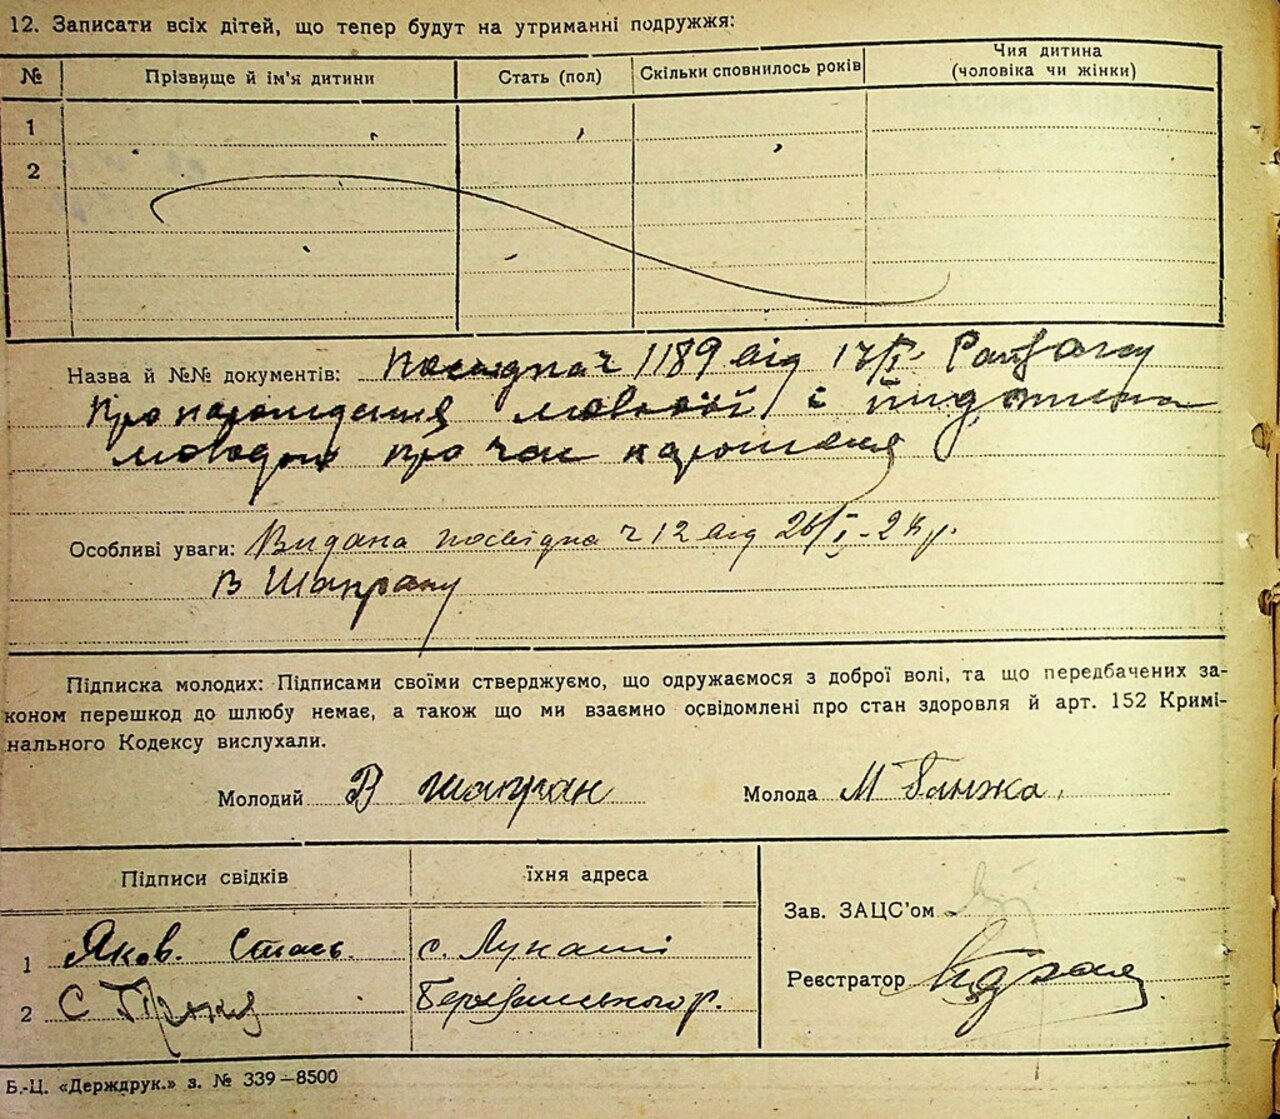 12. Записати всіх дітей, що тепер будут на утриманні подружжя:
№ Прізвище й ім'я дитини Стать (пол) Скільки сповнилось років Чия дитина
(чоловіка чи жінки)
1
2
Назва й №№ документів: ч 1189 від 17/I
про народження молодої і
молодого про час
Особливі уваги: Видана посвідка ч 12 від 26/I-
В Шапрану
Підписка молодих: Підписами своїми стверджуємо, що одружаємося з доброї волі, та що передбачених за-
коном перешкод до шлюбу немає, а також що ми взаємно освідомлені про стан здоровля й арт. 152 Кримі-
нального Кодексу вислухали.
Молодий В Шапран Молода М Банжа
Підписи свідків їхня адреса
Зав. ЗАЦС'ом
1 Яков. Стась. с. Лукаші
Реєстратор
2 С Березанського р.
Б.-Ц. «Держдрук.» з. № 339—8500